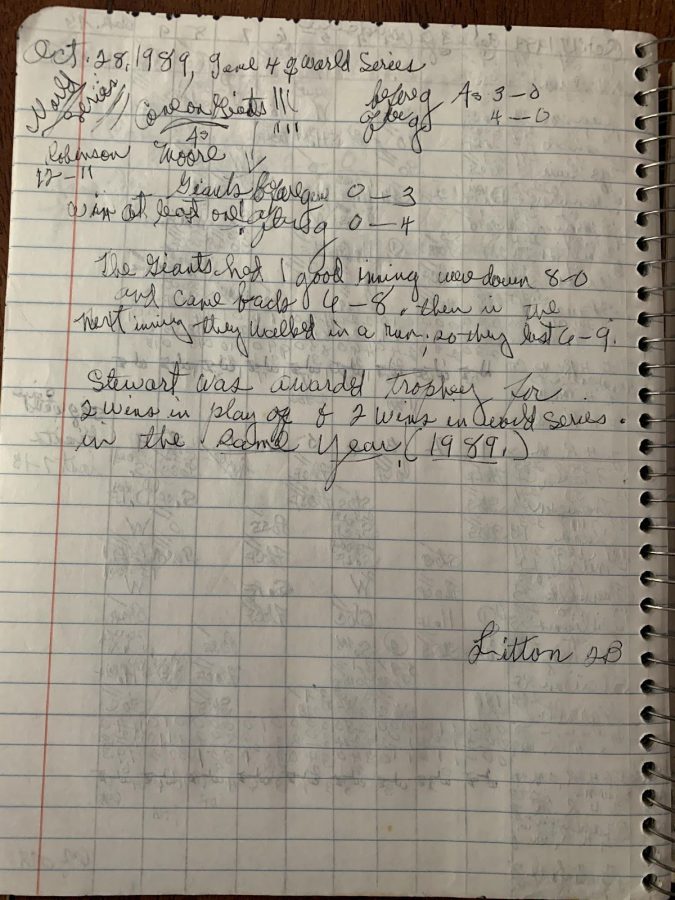 Oct. 28, 1989, Game 4 of World Series
World Series
Come on Giants !!!
!!!
before g As 3-0
after g 4-0
As
Robinson Moore
12-11
Giants before game 0-3
win at least one! after g 0-4
The Giants had 1 good inning were down 8-0
and came back 6-8, then in the
next inning they walked in a run, so they lost 6-9.
Stewart was awarded trophy for
2 wins in play off & 2 wins in World Series.
in the same year (1989.)
Litton 2B